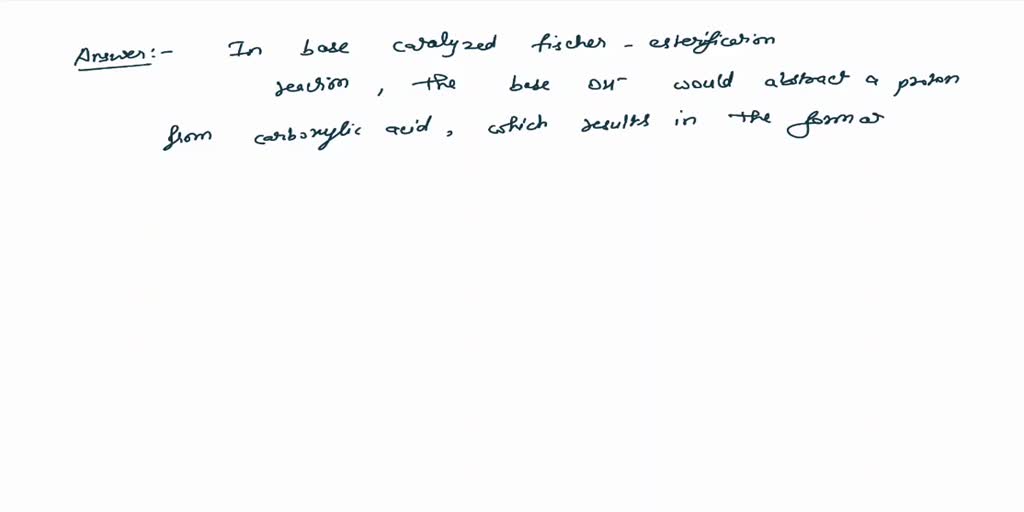 Answer:- In base catalyzed fischer - esterification
reaction, the base OH⁻ would abstract a proton
from carboxylic acid, which results in the format